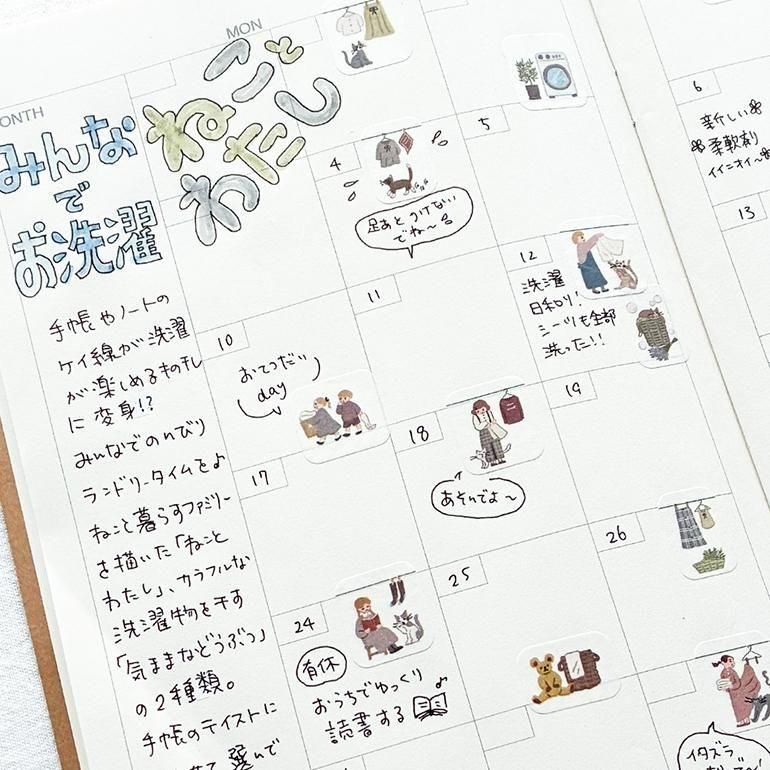 MONTH
MON
みんな
で
お洗濯
ねこと
わたし
手帳やノートの
ケイ線が洗濯
が楽しめるものほし
に変身!?
みんなでのんびり
ランドリータイムを♪
ねこと暮らすファミリー
を描いた「ねこと
わたし」、カラフルな
洗濯物を干す
「気ままなどうぶつ」
の2種類。
手帳のテイストに
選んで
4
足あとつけない
でね〜
5
6
新しい
柔軟剤
イイニオイ〜
10
おてつだい
day
11
12
洗濯
日和り!
シーツも全部
洗った!!
13
17
18
あそんでよ〜
19
24
有休
おうちでゆっくり♪
読書する
25
26
イタズラ